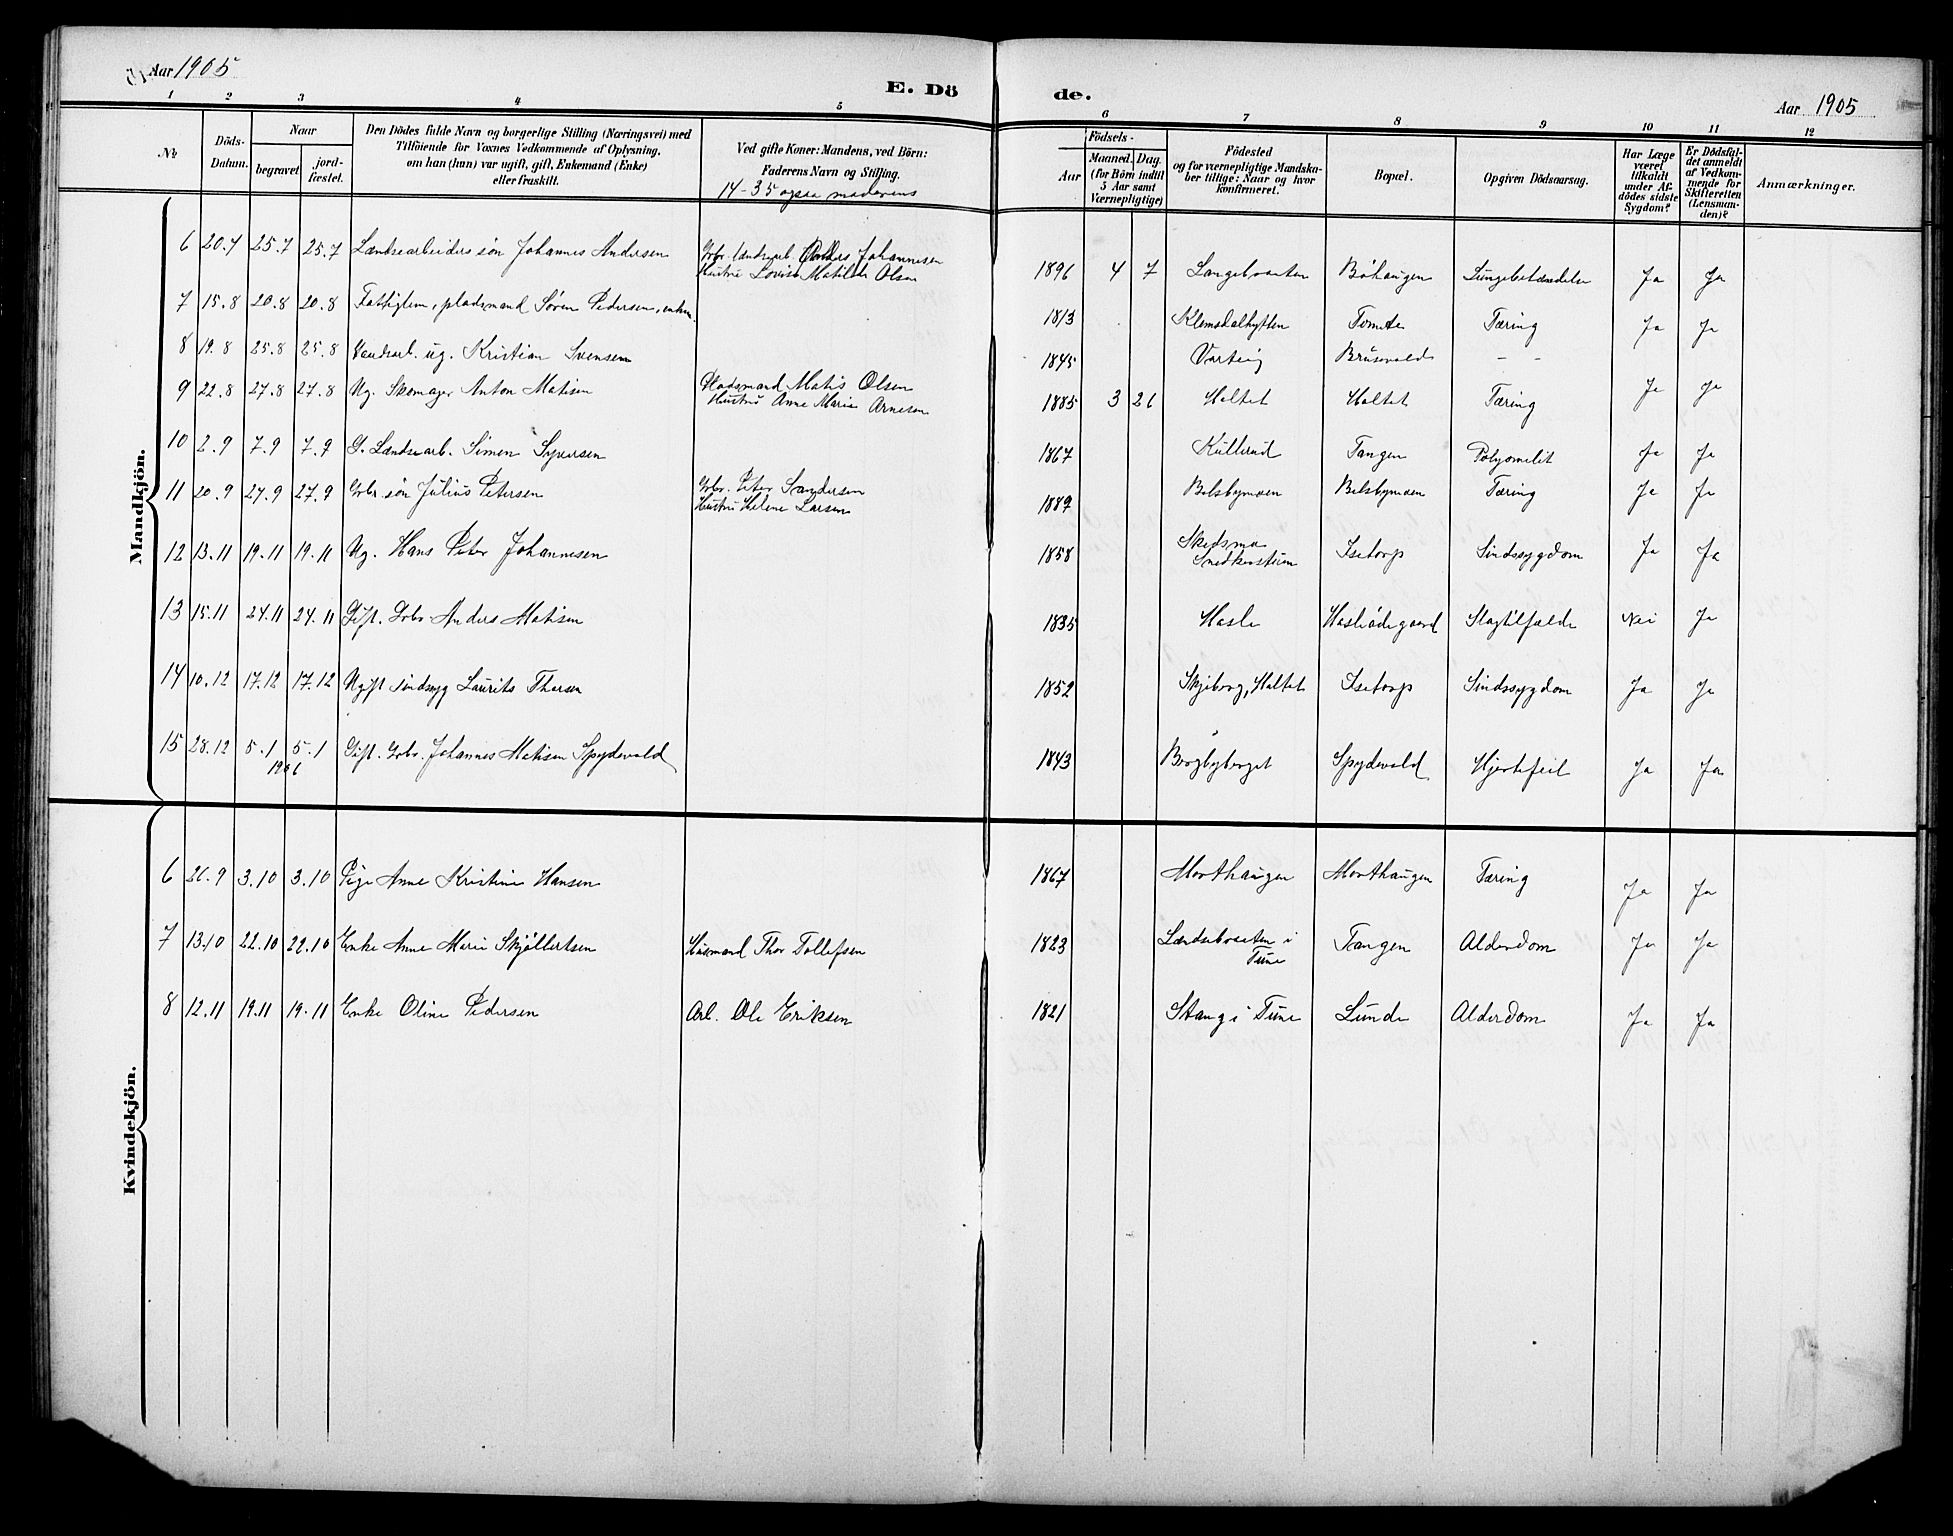 Aar 1905
E. Dö de.
Aar 1905
1 2 3 4 5 6 7 8 9 10 11 12
№
Döds-Datum.
Naar
begravet
jord-fæstet.
Den Dödes fulde Navn og borgerlige Stilling (Næringsvei) med
Tilföiende for Voxnes Vedkommende af Oplysning,
om han (hun) var ugift, gift, Enkemand (Enke)
eller fraskilt.
Ved gifte Koner: Mandens, ved Börn:
Faderens Navn og Stilling.
14-35 ogsaa moderens
Födsels-
Aar
Maaned. Dag.
(for Börn indtil
5 Aar samt
Værnepligtige)
Födested
og for værnepligtige Mandska-
ber tillige: Naar og hvor
konfirmeret.
Bopæl.
Opgiven Dödsaarsag.
Har Læge
været
tilkaldt
under Af-
dödes sidste
Sygdom?
Er Dödsfal-
det anmeldt
af Vedkom-
mende for
Skifteretten
(Lensman-
den)?
Anmærkninger.
Mandkjön.
6 20.7 25.7 25.7 Lændsearbeiders søn Johannes Andersen Grbr. Lændsearb. Anders Johannesen
Hustru Lovise Matilde Olsen 1896 4 7 Langebraaten Böhaugen Lungebetændelse Ja Ja
7 15.8 20.8 20.8 Fattiglem, pladsmand Søren Pedersen, enkm. 1813 Klemsdalhytten Tomte Tæring Ja Ja
8 19.8 25.8 25.8 ug. Kristian Svensen 1845 Varteig Brusevold - -
9 22.8 27.8 27.8 Ug. Skomager Anton Matisen Pladsmand Matis Olsen
Hustru Anne Marie Arnesen 1885 3 26 Holtet Holtet Tæring Ja Ja
10 2.9 7.9 7.9 G. Lændsearb. Simen Syversen 1867 Kullerud Tangen Polyomelit Ja Ja
11 20.9 27.9 27.9 Grbr. søn Julius Petersen Grbr. Peter Sandersen
Hustru Helene Larsen 1889 Bilsbymoen Bilsbymoen Tæring Ja Ja
12 13.11 19.11 19.11 Ug. Hans Peter Johannesen 1858 Skedsmo
Isetorp Sindssygdom Ja Ja
13 15.11 24.11 24.11 Gift. Grbr Anders Matisen 1835 Hasle Hasleødegaard Slagtilfælde Nei Ja
14 10.12 17.12 17.12 Ugift sindssyg Laurits Thorsen 1852 Skjeberg, Holtet Isetorp Sindssygdom Ja Ja
15 28.12 5.1 5.1 Gift. Grbr. Johannes Matisen Spydevold 1843 Brogbyberget Spydevold Hjertefeil Ja Ja
1906
Kvindekjön.
6 26.9 3.10 3.10 Pige Anne Kristine Hansen 1867 Morthaugen Morthaugen Tæring Ja Ja
7 13.10 22.10 22.10 Enke Anne Marie Skjöllertsen Husmand Thor Tollefsen 1823 Lændsebraaten i
Tune Tangen Alderdom Ja Ja
8 12.11 19.11 19.11 Enke Oline Pedersen Arb. Ole Eriksen 1821 Stang i Tune Lunde Alderdom Ja Ja